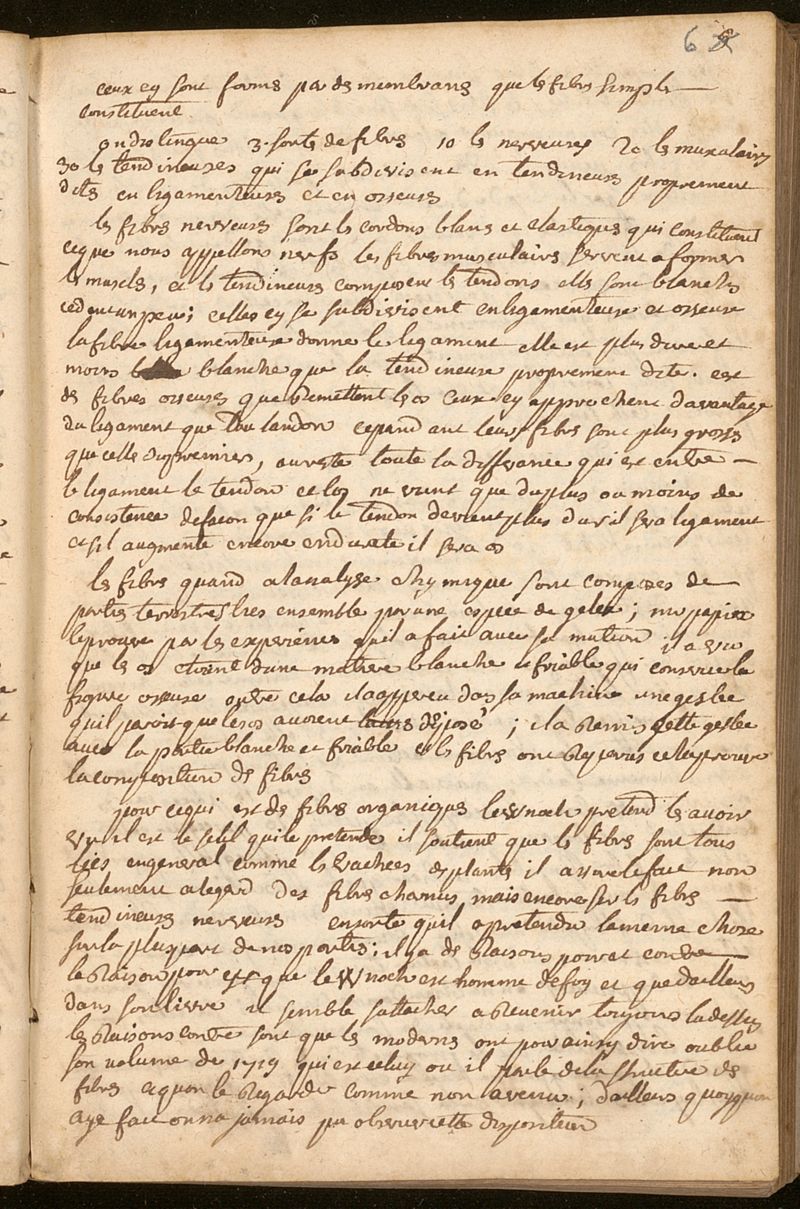 6
ceux cy sont formés par des membranes que les fibres simples
constituent
on distingue 3 sortes de fibres 1o les nerveuses 2o les musculaires
3o les tendineuses qui se subdivisent en tendineuses proprement
dites en ligamenteuses et en osseuses
les fibres nerveuses sont les cordons blancs et elastiques qui constituent
ceque nous appellons nerfs les fibres musculaires servent a former
les muscles, et les tendineuses composent les tendons elles sont blanches
cedent un peu; celles cy se subdivisent en ligamenteuse et osseuse
la fibre ligamenteuse donne le ligament elle est plus dure et
moins blanche que la tendineuse proprement dite. est
des fibres osseuses que remettent les os ceux cy approchent davantage
du ligament que du tandon cepandant leurs fibres sont plus grosses
que celles du premier, au reste toute la differance qui est entre
le ligament le tendon et los ne vient que du plus ou moins de
consistence de facon que si le tendon devient plus dur il sera ligament
et sil augmente encore en dureté il sera os
les fibres quand a lanalyse chymique sont composées de
parties terrestres liées ensemble par une espece de gelée; mr papin
le prouve par les experiences quil a fait avec sa machine il a vu
que les os etoient dune matiere blanche et friable qui conserve la
figure osseuse outre cela il a apperçu dans sa machine une gelée
quil paroit que les os avoient déposé; il a remis cette gelée
avec la partie blanche et friable et les fibres ont reparus cela prouve
la composition des fibres
pour cequi est des fibres organiques lewnoek pretend les avoir
vu il est le seul qui le pretende il soutient que les fibres sont tous
liés en general comme les trachées des plantes il a avancé le fait non
seulement a legard des fibres charnues, mais encore sur les fibres
tendineuses nerveuses ensorte quil a pretendu la meme chose
sur la pluspart de nos parties; il y a des raisons pour et contre
la raison pour est que lewnoek est homme de foy et que dailleurs
dans son livre il semble sattacher a revenir toujours la dessus
les raisons contre sont que les modernes ont pour ainsy dire oublié
son volume de 1719 qui est celuy ou il parle de la structure des
fibres et quon le regarde comme non avenu; dailleurs quoyquon
aye fait on na jamais pu observer cette disposition